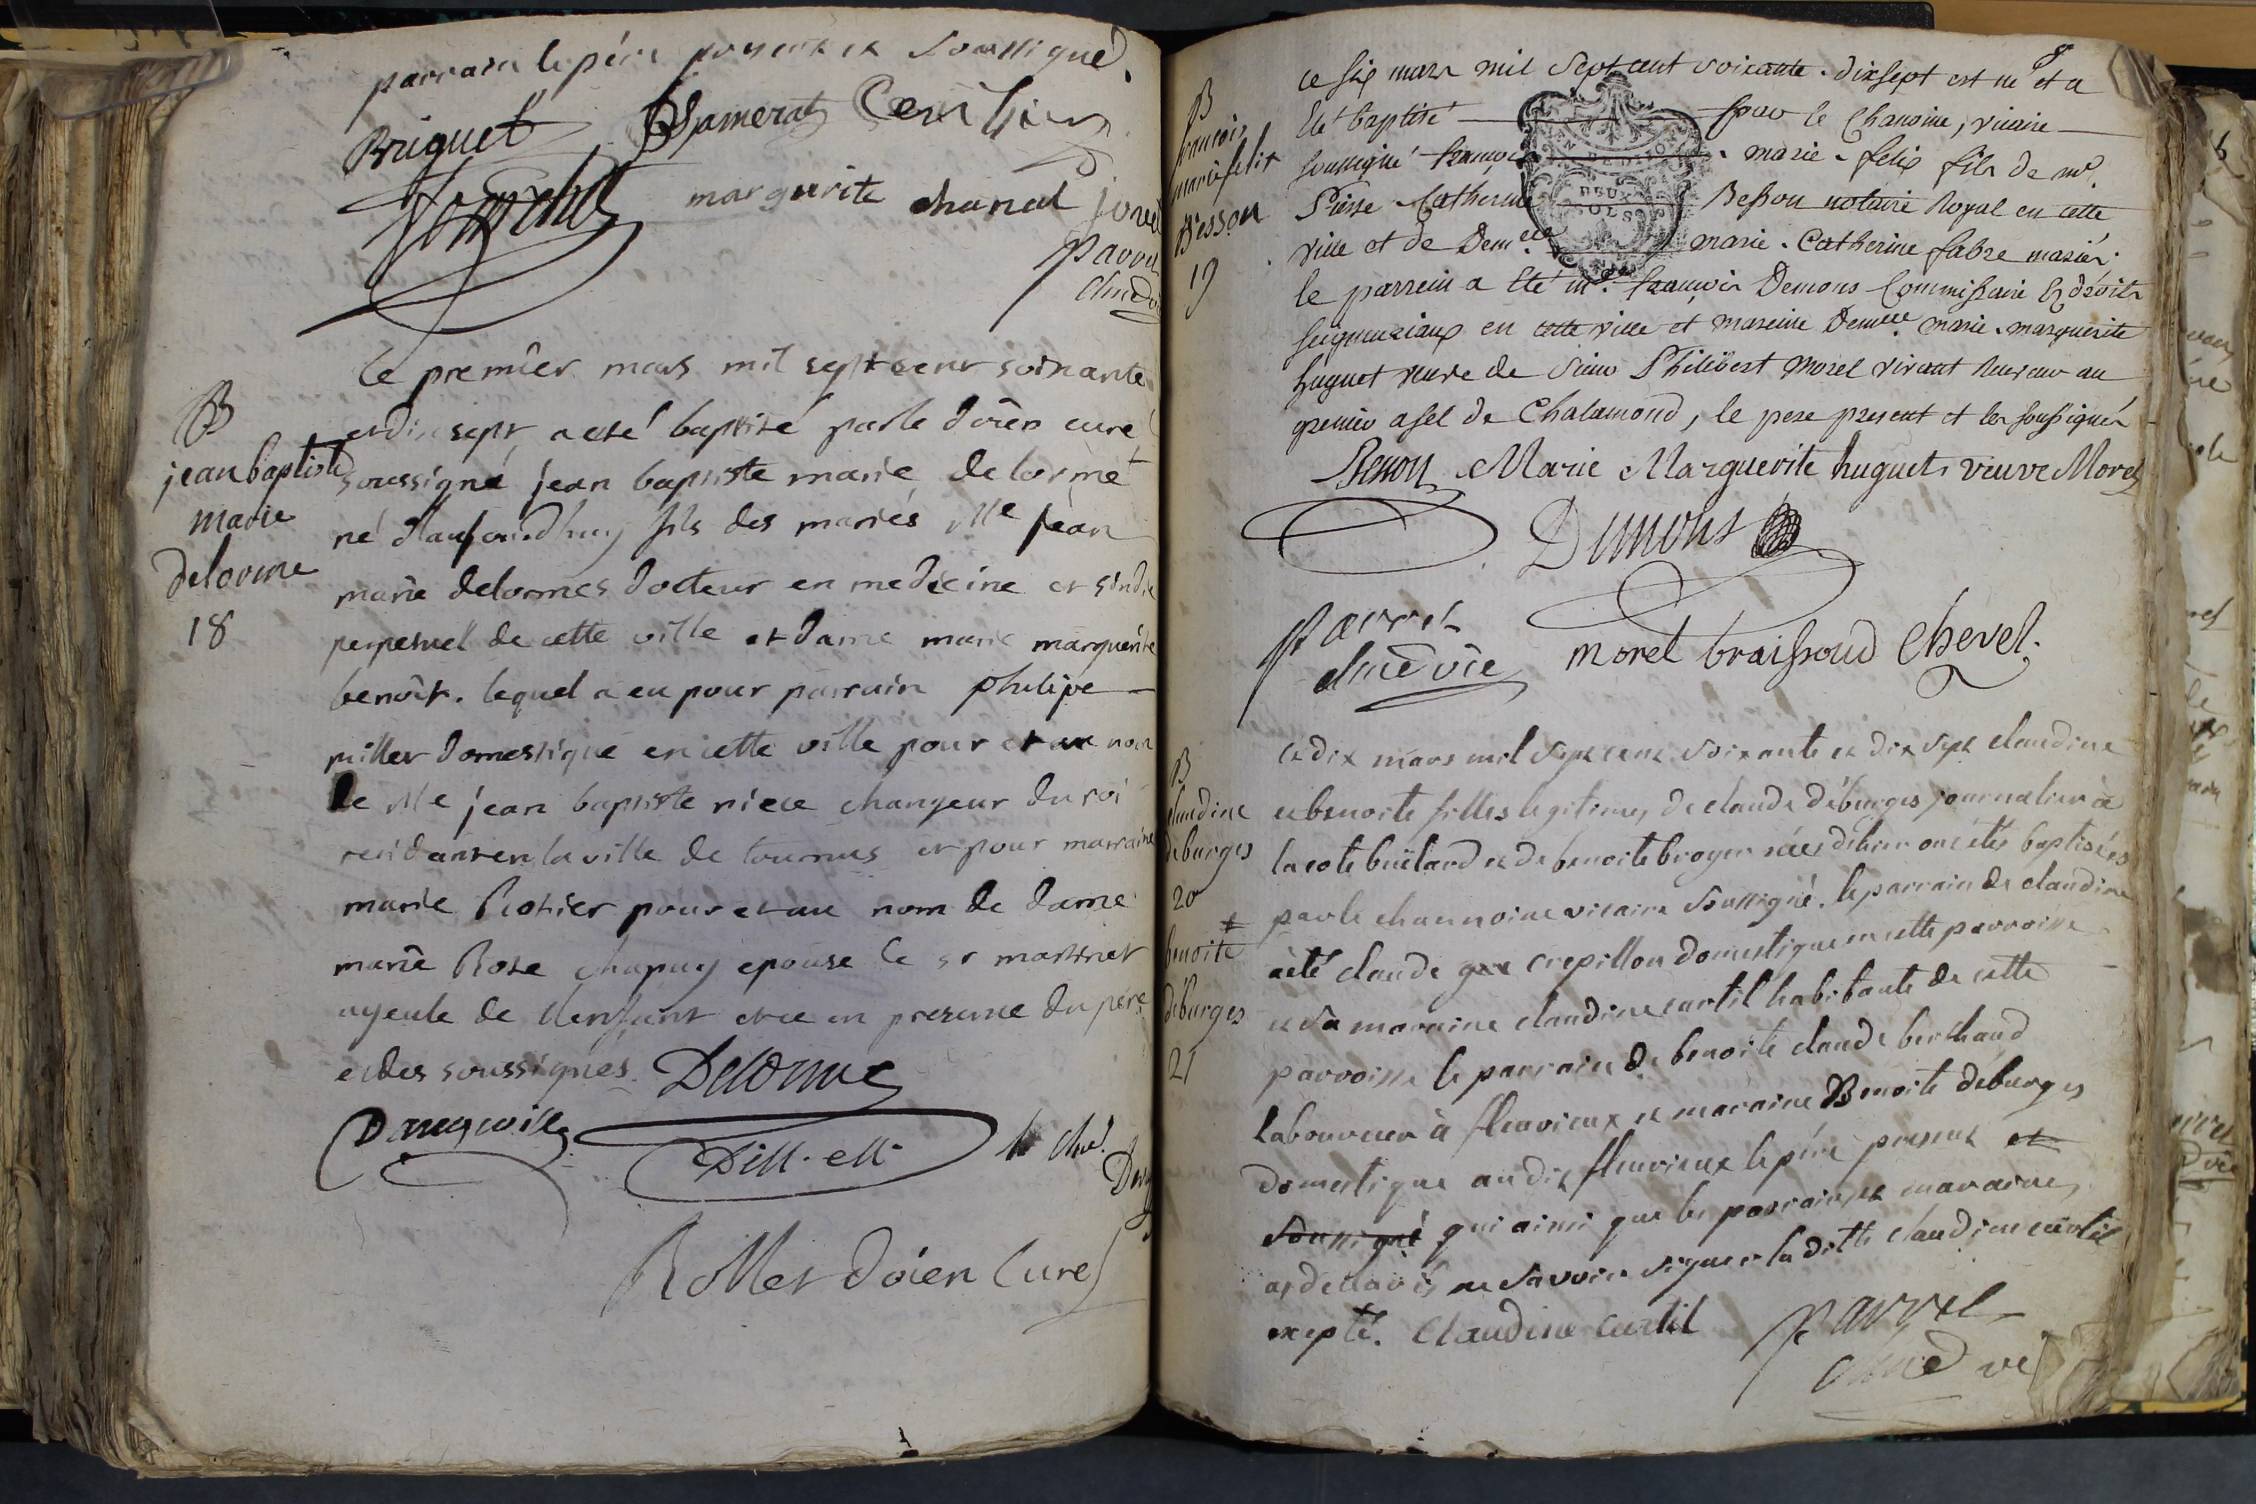 parrain le père present et soussigné
Briguet
marguerite chanal
B
jean baptiste
marie
delorme
18
le premier mars mil sept cent soixante
et dix sept a eté baptisé par le doïen curé
soussigné jean baptiste marie delorme
né d'aujourd'huy fils des mariés Me jean
marie delormes docteur en medecine et sindic
perpetuel de cette ville et dame marie marguerite
benoit. lequel a eu pour parrain philipe
miller domestique en cette ville pour et au nom
de Me jean baptiste niece changeur du roi
residant en la ville de tournus et pour marraine
marie Rotier pour et au nom de dame
marie Rose chapuy epouse le sr martinet
ayeule de l'enfant et ce en presence du père
et des soussignés. Delorme
le cher
doïen Curé
8
B
françois
marie felix
Besson
19
ce six mars mil sept cent soixante-dixsept est né et a
été baptisé par le Chanoine, vicaire
soussigné françois-marie-felix fils de me.
Pierre-Catherine Besson notaire Royal en cette
ville et de Demelle marie-Catherine fabre mariés.
le parrein a été me. françois Demons Commissaire Es droits
seigneuriaux en cette ville et mareine Demelle marie-marguerite
huguet veuve de sieur Philibert Morel vivant Receveur au
grenier a sel de Chalamond, le pere present et les soussignés
Besson Marie Marguerite huguet veuve Morel
Demons
Parrel
chne vic
morel braissoud Chevel.
B
claudine
deburges
20
+
benoite
deburges
21
ce dix mars mil sept cent soixante et dix sept claudine
et benoite filles legitimes de claude déburges journalier à
la cote buïlard et de benoite broyer nées d'hier ont étés baptisées
par le channoine vicaire soussigné. le parrain de claudine
a été claude crepillon domestique en cette parroisse
et sa maraine claudine curtil habitante de cette
parroisse le parrain de benoite claude berthaud
laboureur à fleurieux et maraine Benoite déburges
domestique audit fleurieux le père present et
soussigné qui ainsi que les parrains et maraines
ne savoir signer la ditte claudine curtil
exepté. Claudine Curtil Parrel